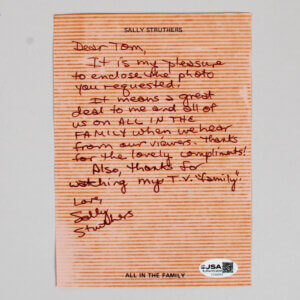 SALLY STRUTHERS
Dear Tom,
It is my pleasure
to enclose the photo
you requested.
It means a great
deal to me and all of
us on ALL IN THE
FAMILY when we hear
from our viewers. Thanks
for the lovely compliments!
Also, thanks for
watching my T.V. "family".
Love,
Sally
Struthers
JSA
ALL IN THE FAMILY